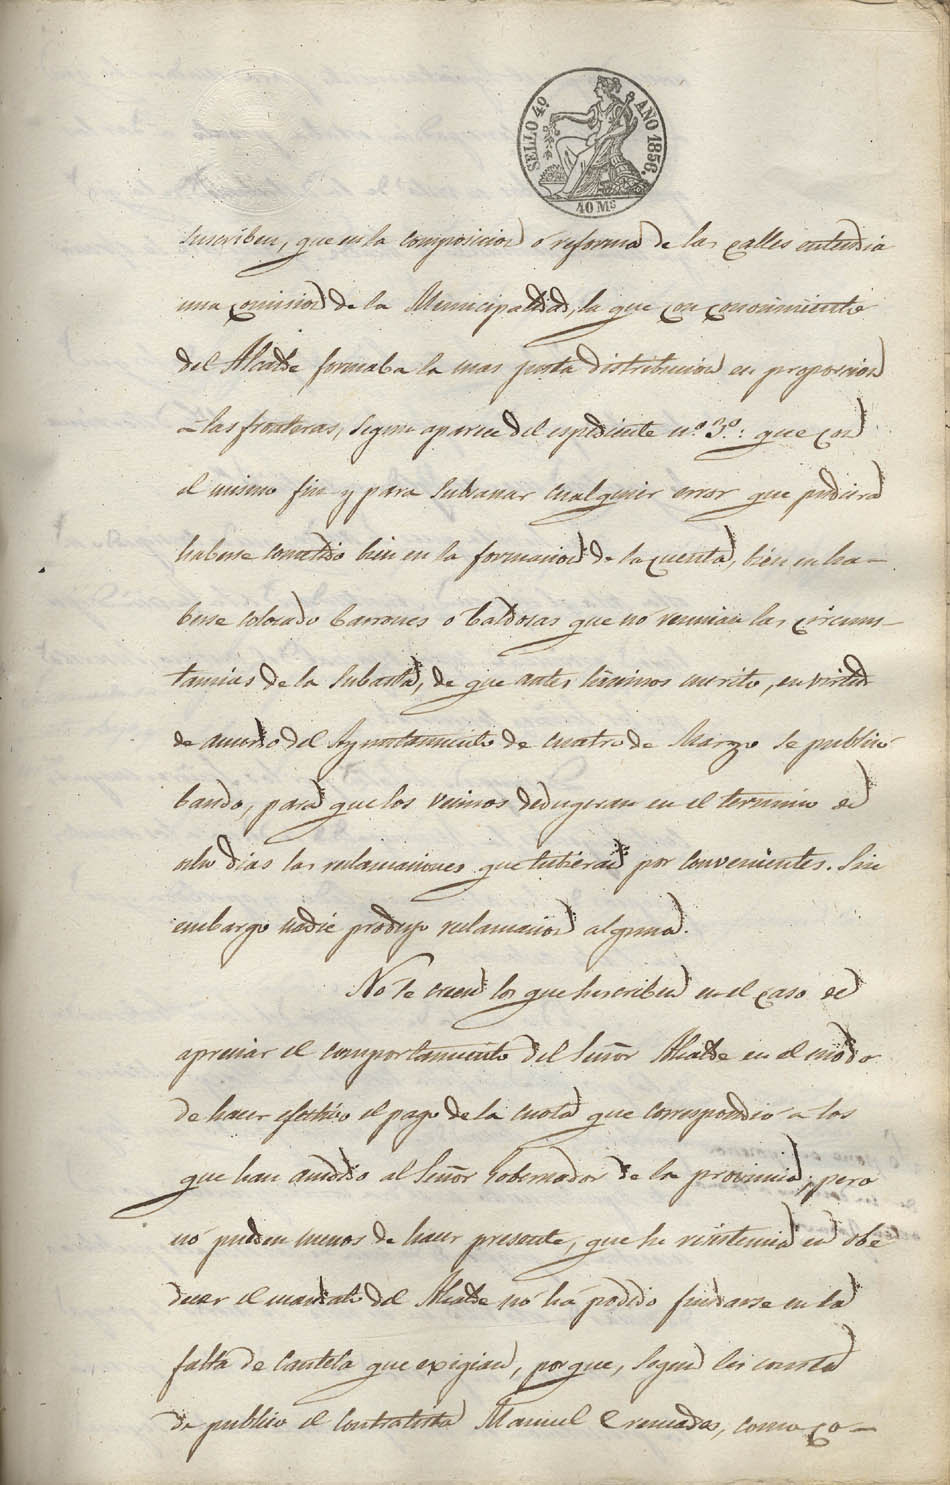 SELLO 4º AÑO 1856.
40 Ms
suscriben, que en la composicion ó reforma de las calles entendia
una comision de la Municipalidad, la que con conocimiento
del Alcalde formaba la mas justa distribucion en proporcion
a las fronteras, segun aparece del espediente nº 3º: que con
el mismo fin y para subsanar cualquier error que pudiera
haberse cometido bien en la formacion de la cuenta, bien en ha-
berse colocado barrones ó baldosas que nó reunian las circuns-
tancias de la subasta, de que antes hicimos merito, en virtud
de acuerdo del Ayuntamiento de cuatro de Marzo se publicó
bando, para que los vecinos dedugeran en el termino de
ocho dias las reclamaciones que tubieran por convenientes. Sin
embargo nadie produjo reclamacion alguna.
No se creen los que suscriben en el caso de
apreciar el comportamiento del Señor Alcalde en el modo
de hacer efectivo el pago de la cuota que correspondió a los
que han acudido al Señor Gobernador de la provincia, pero
nó pueden menos de hacer presente, que su resistencia en obe
decer el mandato del Alcalde nó há podido fundarse en la
falta de cautela que exigian, porque, segun les consta
de publico el contratista Manuel Cremades, como co-